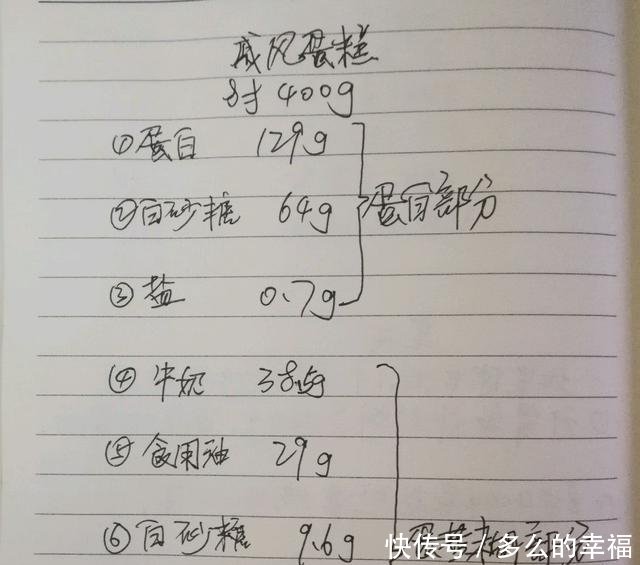 戚风蛋糕
8寸 400g
①蛋白 129g
②白砂糖 64g 蛋白部分
③盐 0.7g
④牛奶 38.5g
⑤食用油 29g
⑥白砂糖 9.6g 蛋黄糊部分
快传号/多么的幸福